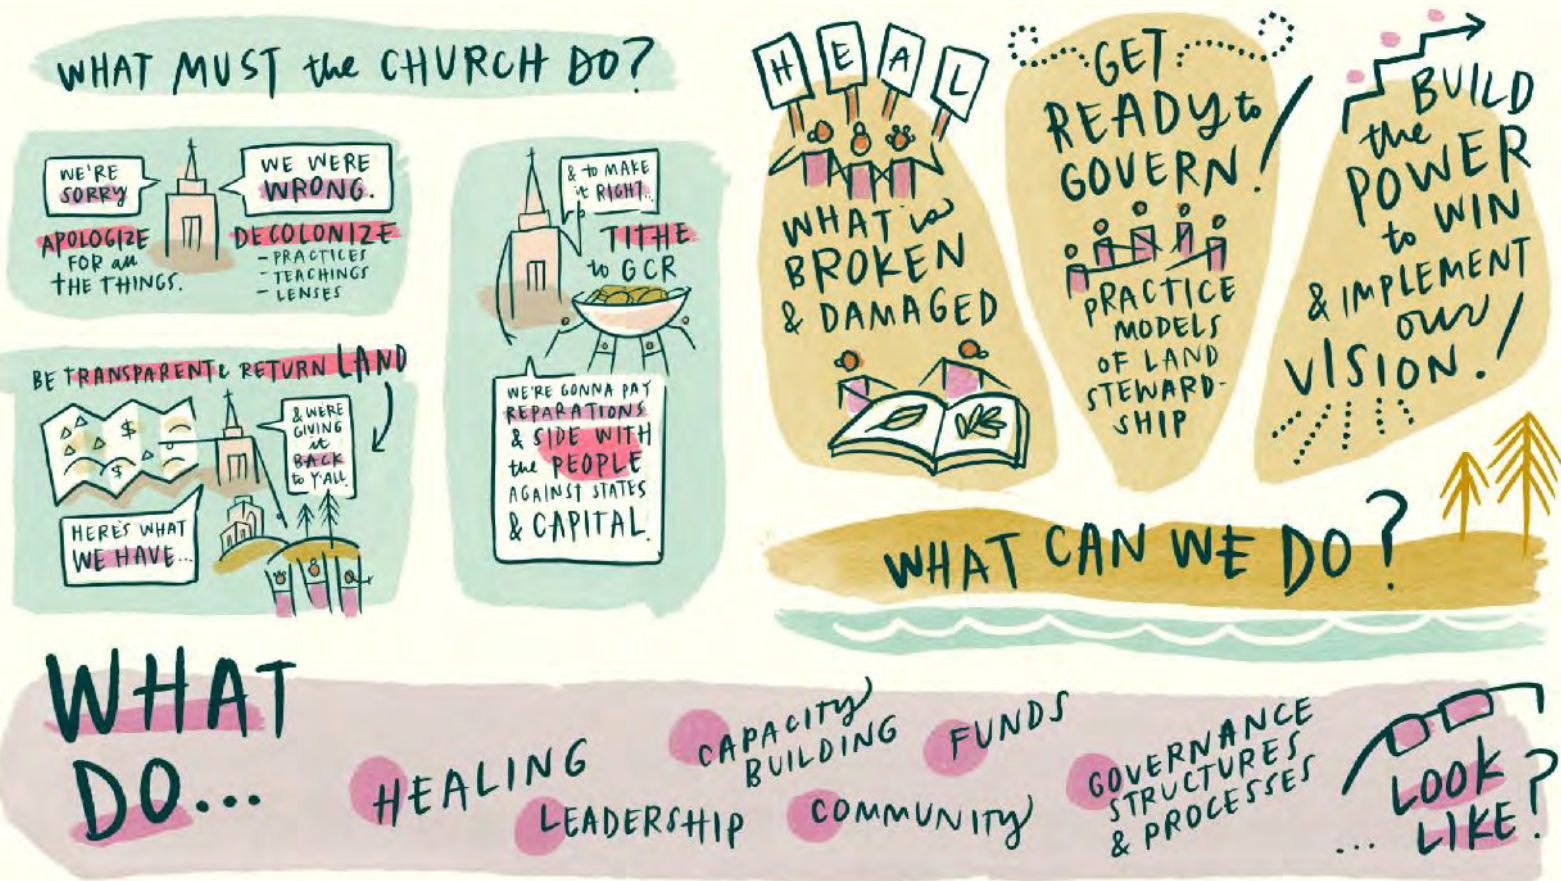 WHAT MUST the CHURCH DO?
WE'RE
SORRY
WE WERE
WRONG.
APOLOGIZE
FOR all
THE THINGS.
DECOLONIZE
- PRACTICES
- TEACHINGS
- LENSES
BE TRANSPARENT & RETURN LAND
$
$
& WE'RE
GIVING
it
BACK
to Y'ALL.
HERE'S WHAT
WE HAVE...
& to MAKE
it RIGHT...
TITHE
to GCR
WE'RE GONNA PAY
REPARATIONS
& SIDE WITH
the PEOPLE
AGAINST STATES
& CAPITAL.
H E A L
WHAT is
BROKEN
& DAMAGED
GET
READY to
GOVERN!
PRACTICE
MODELS
OF LAND
STEWARD-
SHIP
BUILD
the
POWER
to WIN
& IMPLEMENT
our
VISION!
WHAT CAN WE DO?
WHAT
DO...
HEALING
LEADERSHIP
CAPACITY
BUILDING
COMMUNITY
FUNDS
GOVERNANCE
STRUCTURES
& PROCESSES
... LOOK
LIKE?